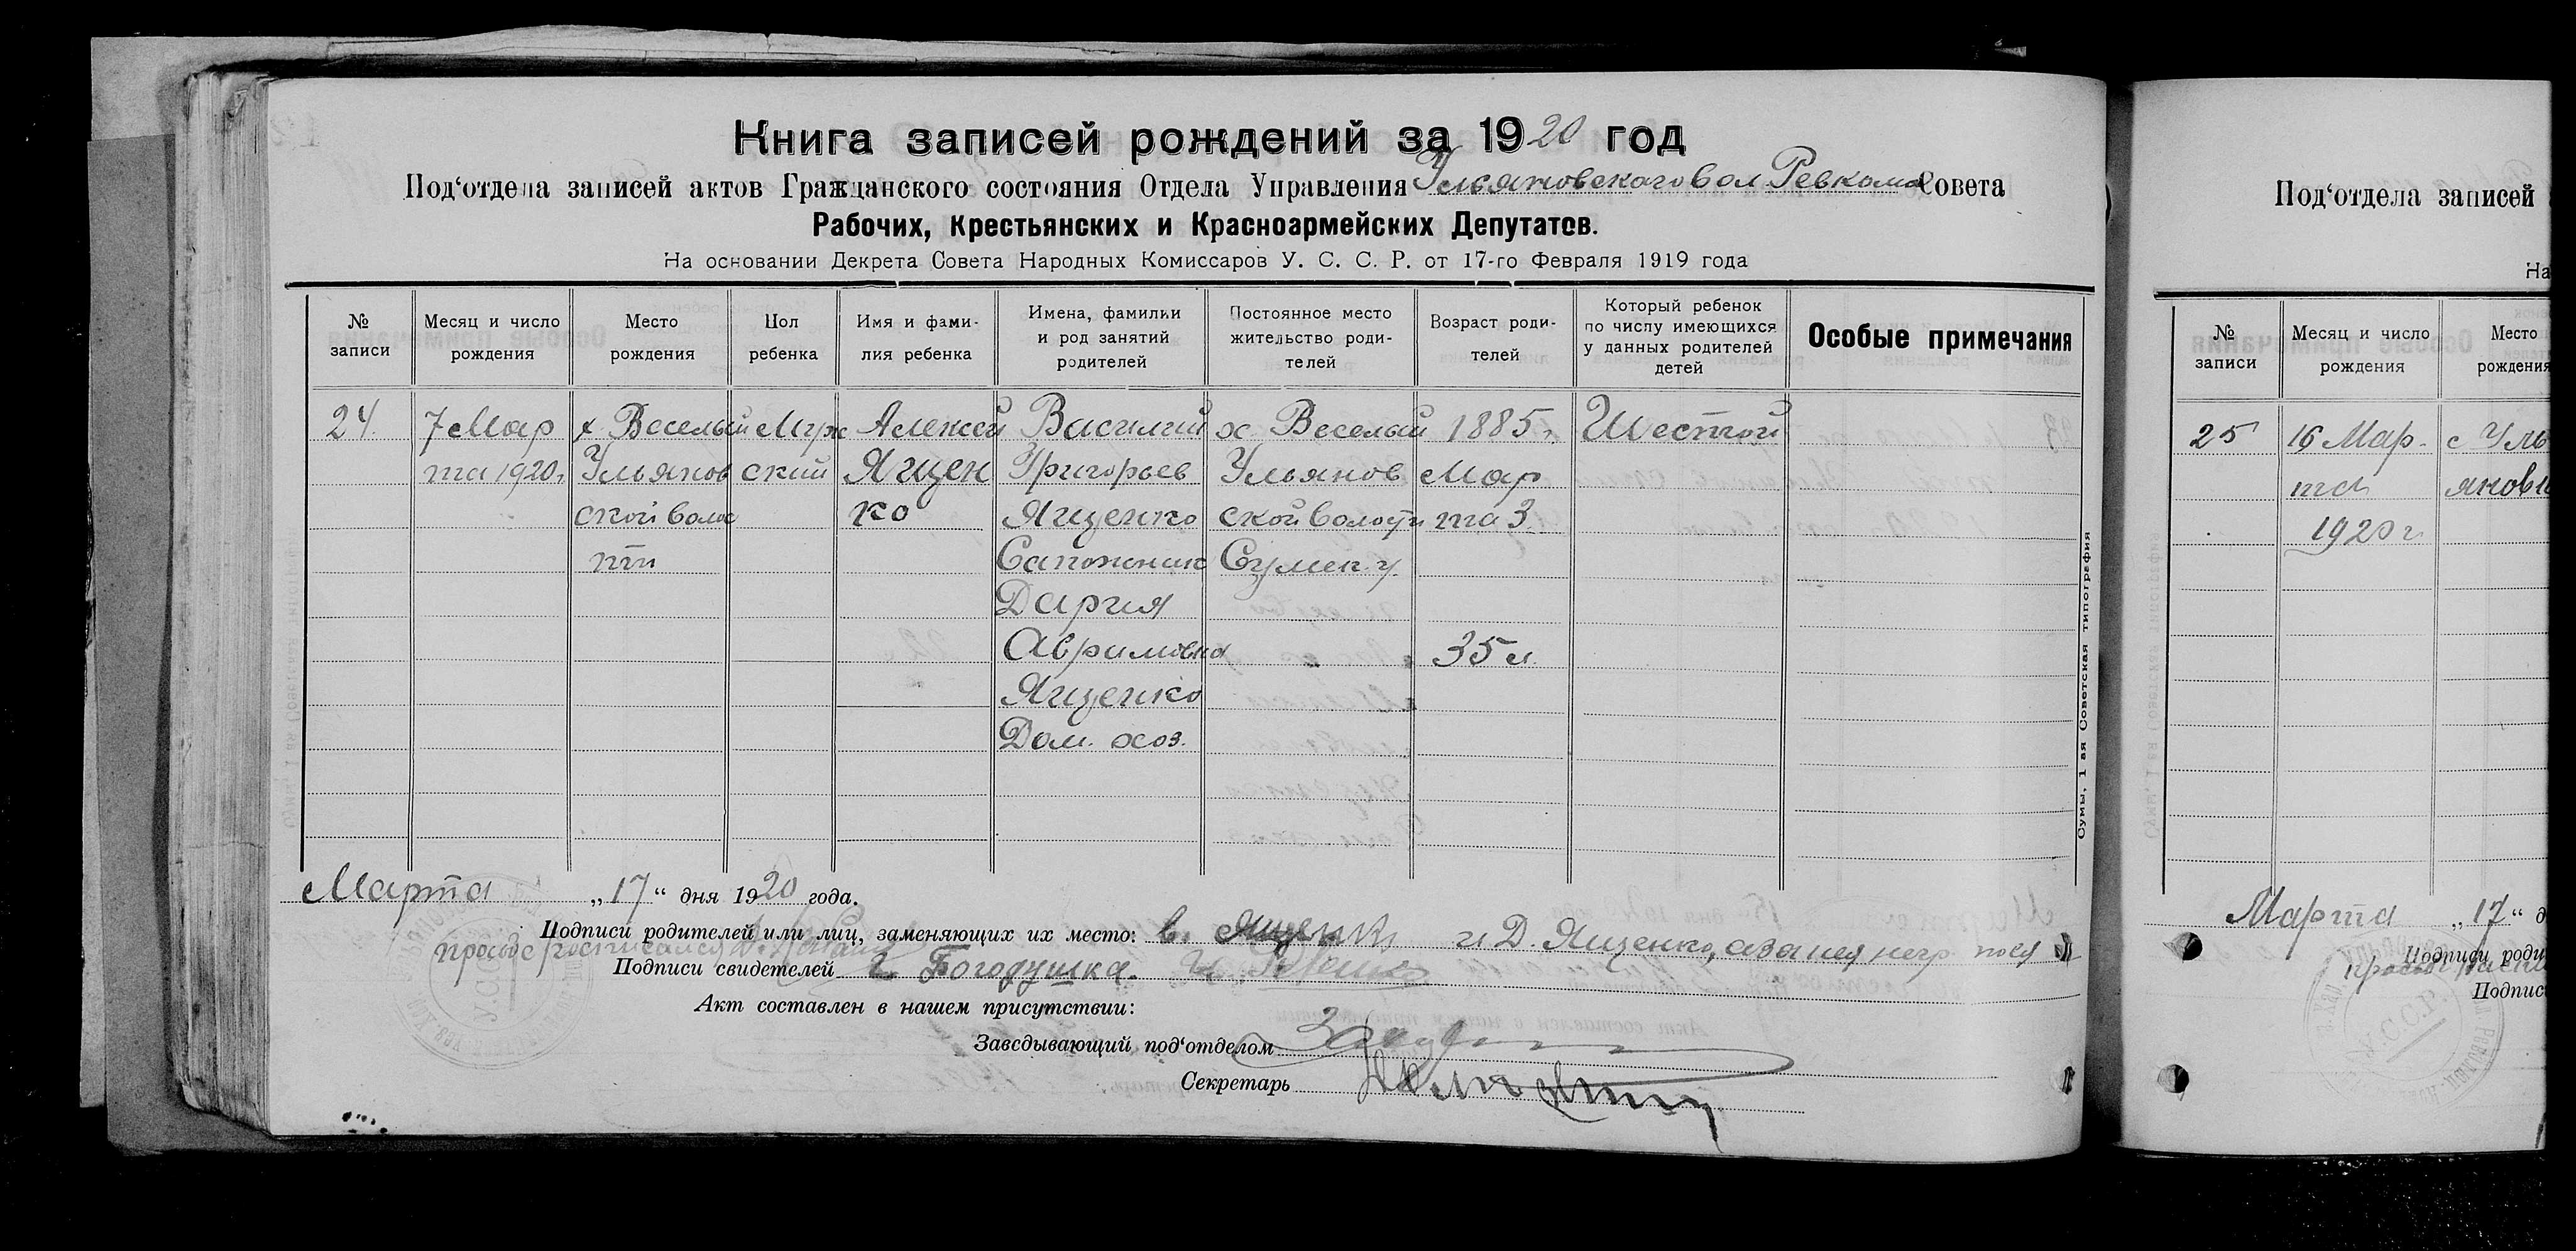 Книга записей рождений за 1920 год
Под‘отдела записей актов Гражданского состояния Отдела Управления Ульяновскаго вол Ревкома Совета
Рабочих, Крестьянских и Красноармейских Депутатов.
На основании Декрета Совета Народных Комиссаров У. С. С. Р. от 17-го Февраля 1919 года
№ записи
Месяц и число рождения
Место рождения
Пол ребенка
Имя и фами-
лия ребенка
Имена, фамилии
и род занятий
родителей
Постоянное место
жительство роди-
телей
Возраст роди-
телей
Который ребенок
по числу имеющихся
у данных родителей
детей
Особые примечания
24.
7 Мар
та 1920 г.
х Веселый
Ульянов
ской волос
ти
Муж
ский
Алексей
Ященко
Василий
Григорьев
Ященко
Сапожник
Дария
Аврамовна
Ященко
Дом. хоз.
х Веселый
Ульянов
ской волости
Сумск. у.
1885 г.
Мар
та 3.
35 л.
Шестой
Сумы, 1 ая Советская типография
Марта „17“ дня 1920 года.
Подписи родителей или лиц, заменяющих их место: в. Ященко и Д. Ященко, а за нея негр по ея
просьбе росписался
Подписи свидетелей Богодушка.
Акт составлен в нашем присутствии:
Заведывающий под‘отделом
Секретарь
Под‘отдела записей
На
№ записи
Месяц и число рождения
Место рождения
25
16 Мар-
та
1920 г.
с Уль
яновк
Марта „17“ д
Подписи роди
Подпис
У.С.С.Р.